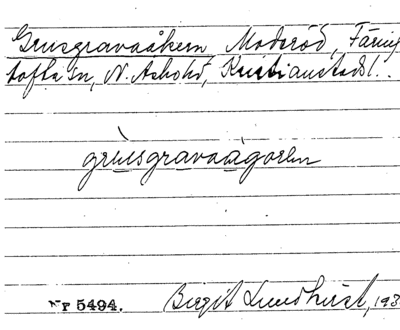 Grusgravaåkern, Moderöd, Färing
tofta sn, N. Åsbohd, Kristianstadsl.
grùusgravaàgoren
Nr 5494. Birgit Lundhqvist, 193